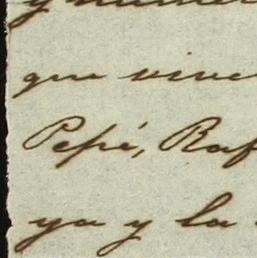 que vive
Pepé, Raf
ya y la